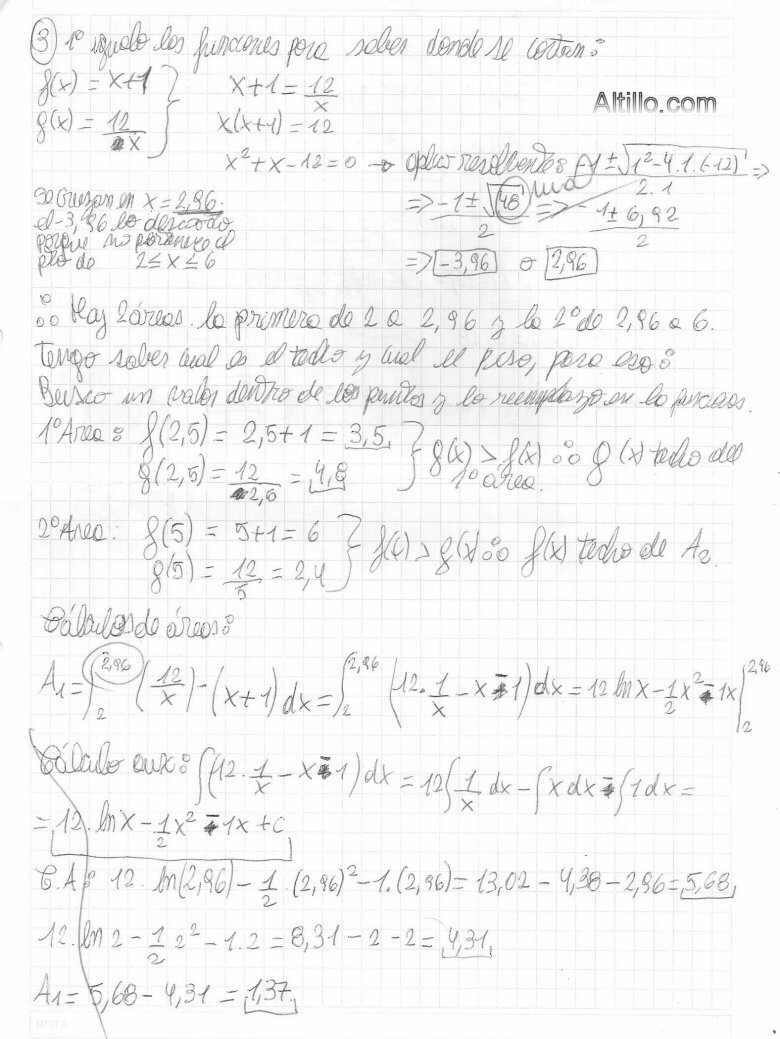 ③ 1º igualo las funciones para saber donde se cortan:
f(x) = x+1 } x+1 = 12/x
Altillo.com
g(x) = 12/x x(x+1) = 12
x²+x-12=0 → aplicar resolvente: -1±√(1²-4.1.(-12))/2.1 ⇒
Se cruzan en x = 2,96.
el -3,96 lo descarto
porque no pertenece al
pto de 2≤x≤6
⇒ -1±√48/2 ⇒ -1±6,92/2
⇒ -3,96 o 2,96
∴ Hay 2 áreas. la primera de 2 a 2,96 y la 2º de 2,96 a 6.
Tengo saber cual es el techo y cual el piso, para eso:
Busco un valor dentro de los puntos y lo reemplazo en la
1º Area: f(2,5) = 2,5+1 = 3,5 } g(x) > f(x) ∴ g(x) techo del
g(2,5) = 12/2,5 = 4,8 1º área.
2º Area: f(5) = 5+1 = 6 } f(x) > g(x) ∴ f(x) techo de A₂.
g(5) = 12/5 = 2,4
Cálculos de áreas:
A₁ = ∫₂^2,96 (12/x) - (x+1) dx = ∫₂^2,96 (12.1/x - x - 1) dx = 12 ln x - 1/2 x² - 1x |₂^2,96
Cálculo aux: ∫(12.1/x - x - 1) dx = 12∫1/x dx - ∫x dx - ∫1 dx =
= 12. ln x - 1/2 x² - 1x + C
C.A: 12. ln(2,96) - 1/2 . (2,96)² - 1.(2,96) = 13,02 - 4,38 - 2,96 = 5,68
12. ln 2 - 1/2 2² - 1.2 = 8,31 - 2 - 2 = 4,31
A₁ = 5,68 - 4,31 = 1,37